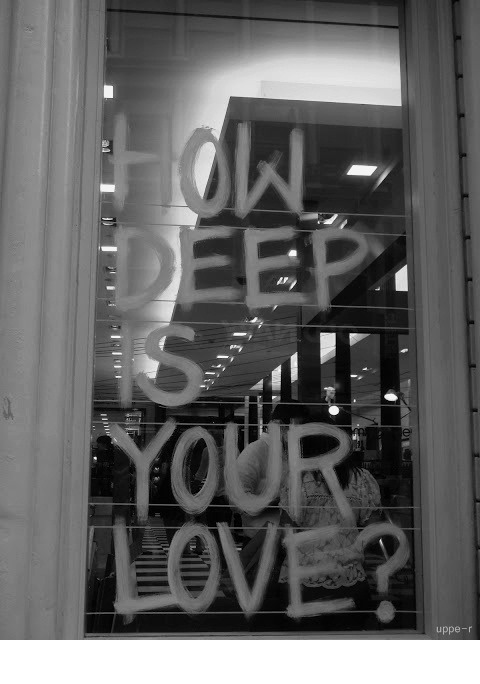 HOW
DEEP
IS
YOUR
LOVE?
uppe-r